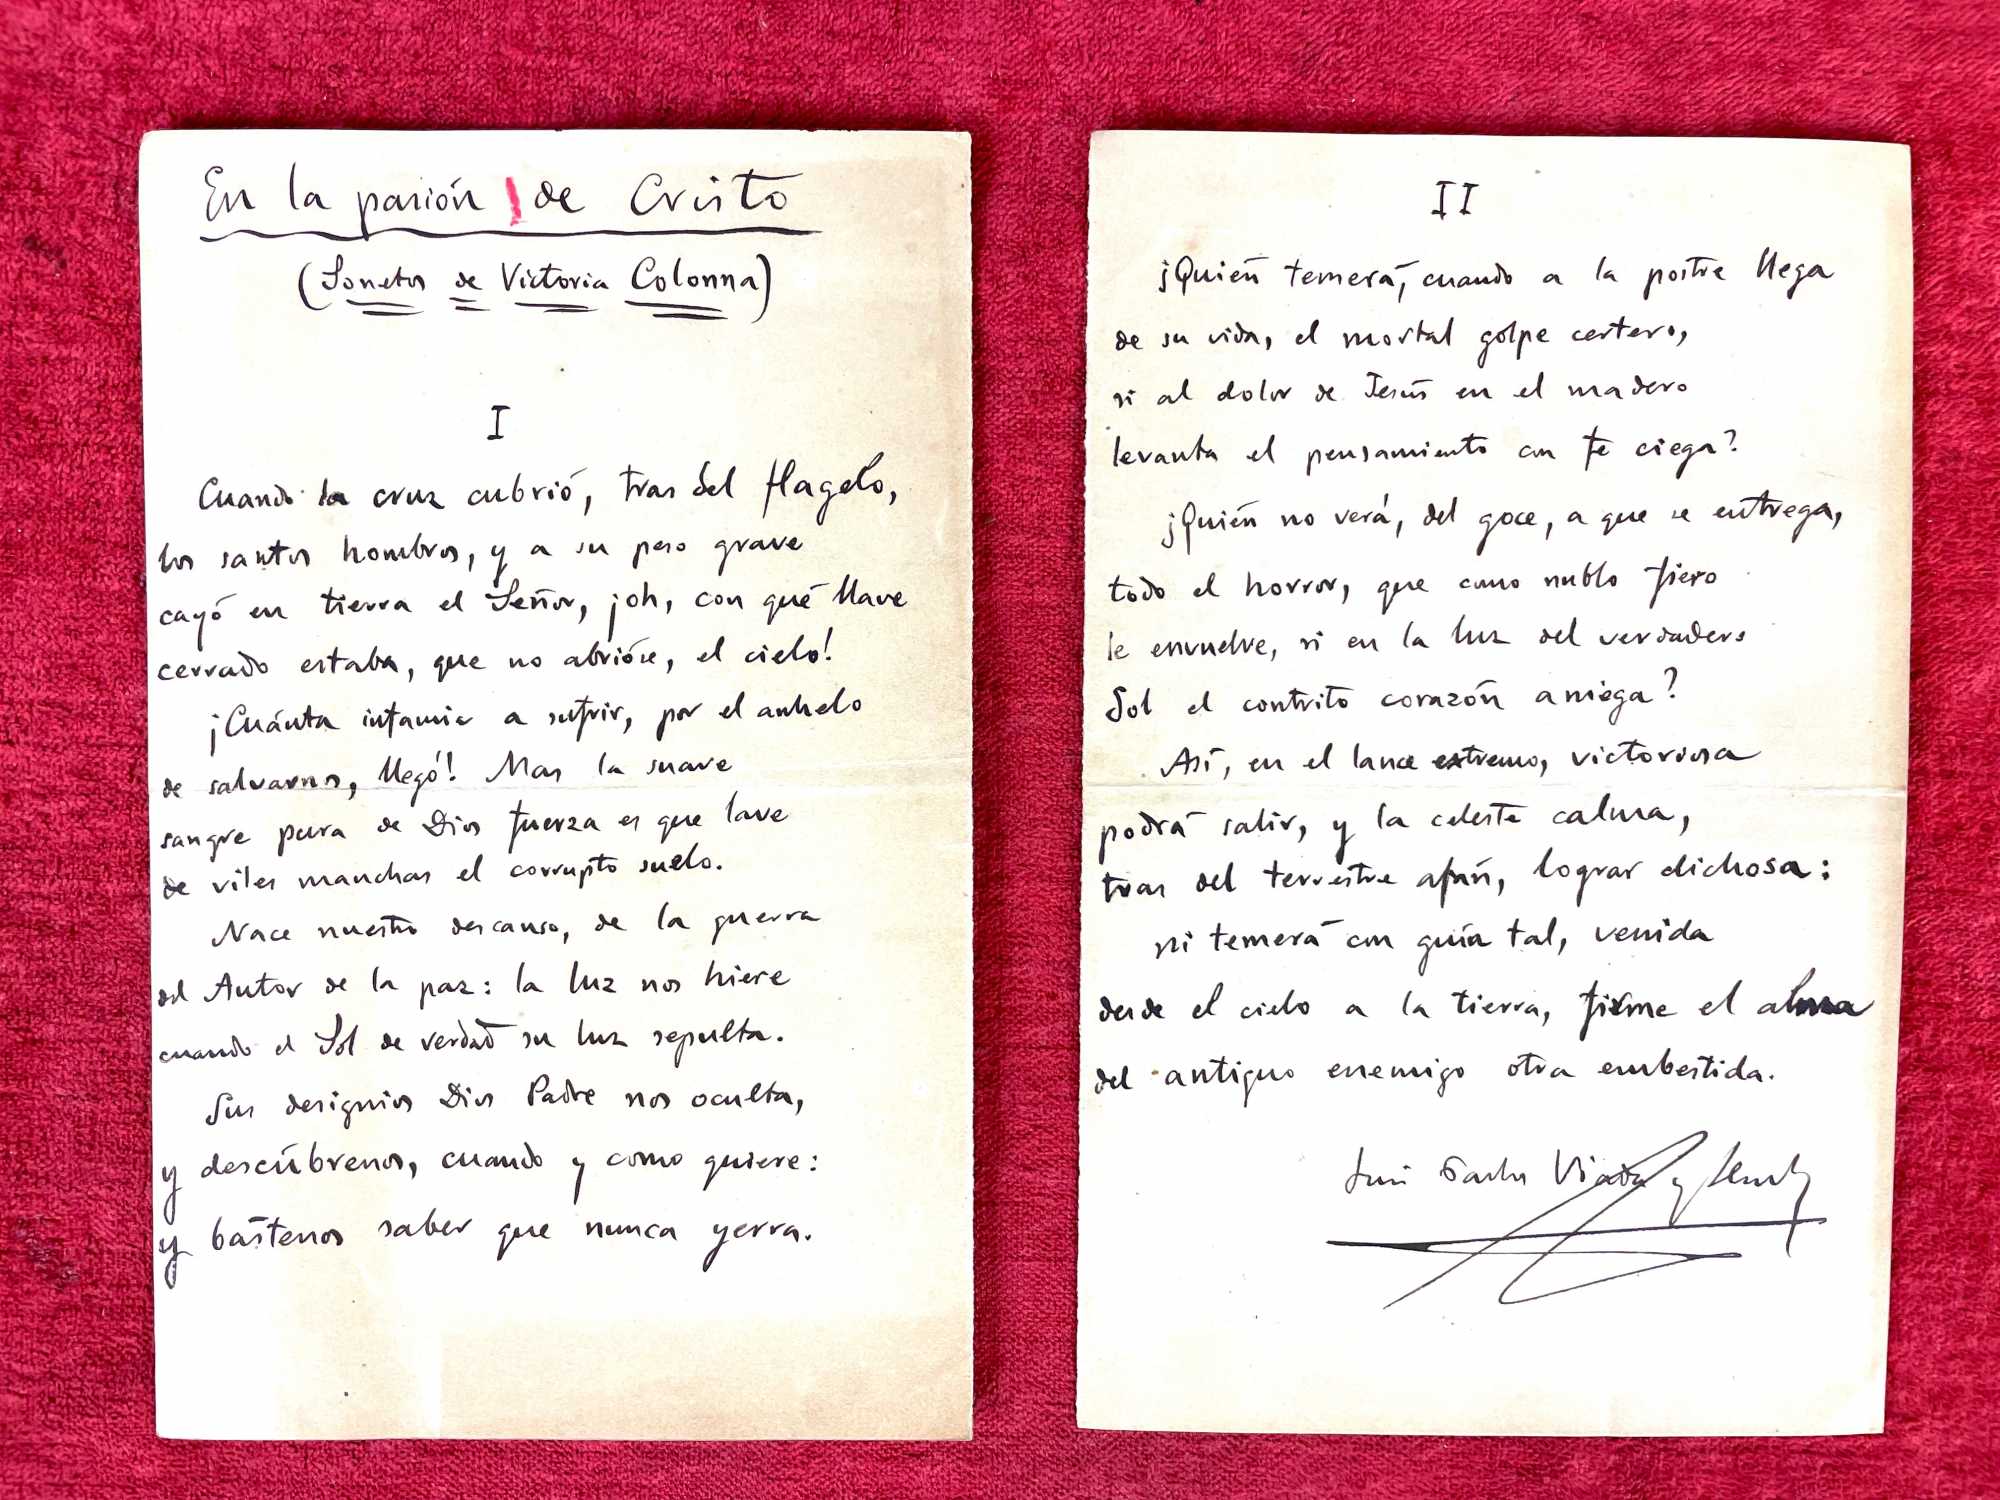 En la pasión de Cristo
(Sonetos de Victoria Colonna)
I
Cuando la cruz cubrió, tras del flagelo,
los santos hombros, y a su peso grave
cayó en tierra el Señor, ¡oh, con qué llave
cerrado estaba, que no abrióse, el cielo!
¡Cuánta infamia a sufrir, por el anhelo
de salvarnos, llegó! Mas la suave
sangre pura de Dios fuerza es que lave
de viles manchas el corrupto suelo.
Nace nuestro descanso, de la guerra
del Autor de la paz: la luz nos hiere
cuando el Sol de verdad su luz sepulta.
Sus designios Dios Padre nos oculta,
y descúbrenos, cuando y como quiere:
y bástenos saber que nunca yerra.
II
¡Quién temerá, cuando a la postre llega
de su vida, el mortal golpe certero,
si al dolor de Jesús en el madero
levanta el pensamiento con fe ciega?
¡Quién no verá, del goce, a que se entrega,
todo el horror, que como nublo fiero
le envuelve, si en la luz del verdadero
Sol el contrito corazón aniega?
Así, en el lance extremo, victoriosa
podrá salir, y la celeste calma,
tras del terrestre afán, lograr dichosa:
ni temerá con guía tal, venida
desde el cielo a la tierra, firme el alma
del antiguo enemigo otra embestida.
Luis Carlos Viada y Lluch